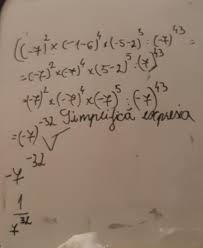 ((-7)² × (-1-6)⁴ × (-5-2)⁵ : (-7)⁴³ =
= (-7)² × (-7)⁴ × (5-2)⁵ : (7)⁴³
(-7)² × (-7)⁴ × (-7)⁵ : (-7)⁴³
= (-7)⁻³² Simplifică expresia
-7⁻³²
1
7³²